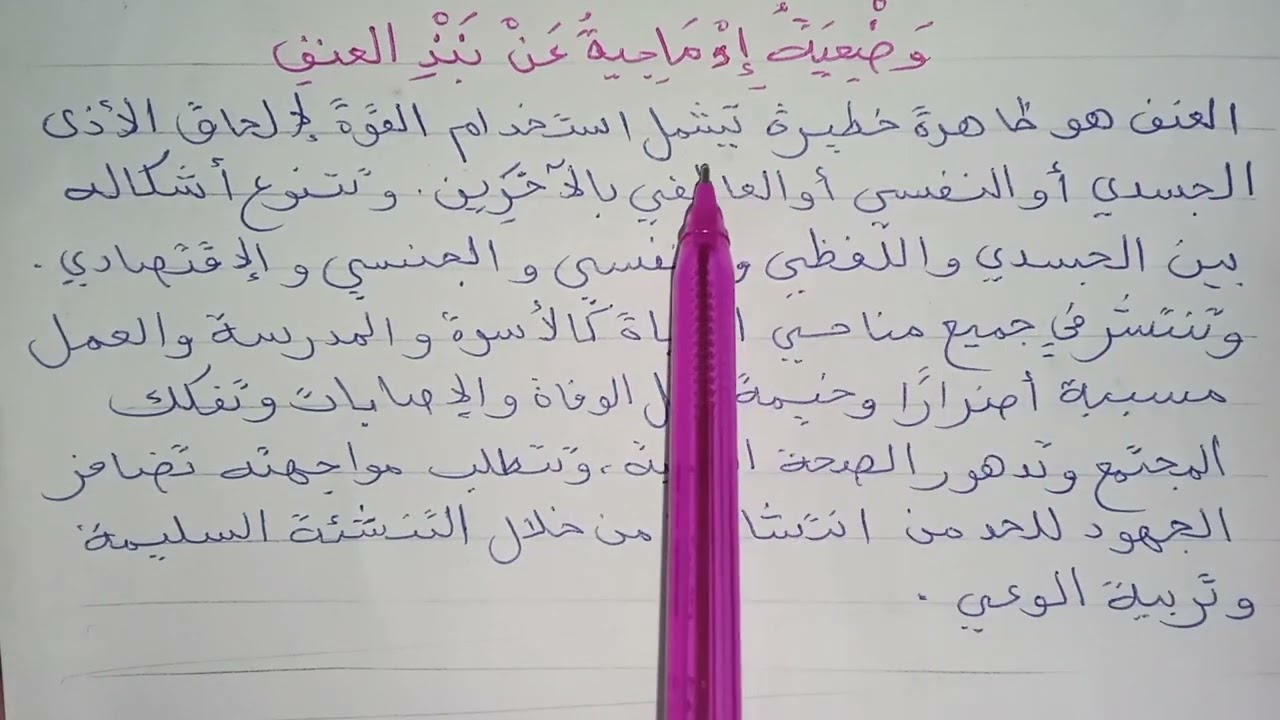 وَضْعِيَةُ إِدْمَاجِيةُ عَنْ نَبْذِ العنفِ
العنف هو ظاهرة خطيرة تَيشمل استخدام القوّة لإلحاق الأذى
الجسدي أو النفسي أو بالآخَرِين. وتتنوع أشكاله
بين الجسدي واللّفظي و والجنسي والإقتصادي.
وتنتشر في جميع مناحي كالأسرة والمدرسة والعمل
مسببة أضرارًا وخيمة الوفاة والإصابات وتفكك
المجتمع وتدهور الصحة ، وتتطلب مواجهته تضافر
الجهود للحد من من خلال التنشئة السليمة
وتربية الوعي.